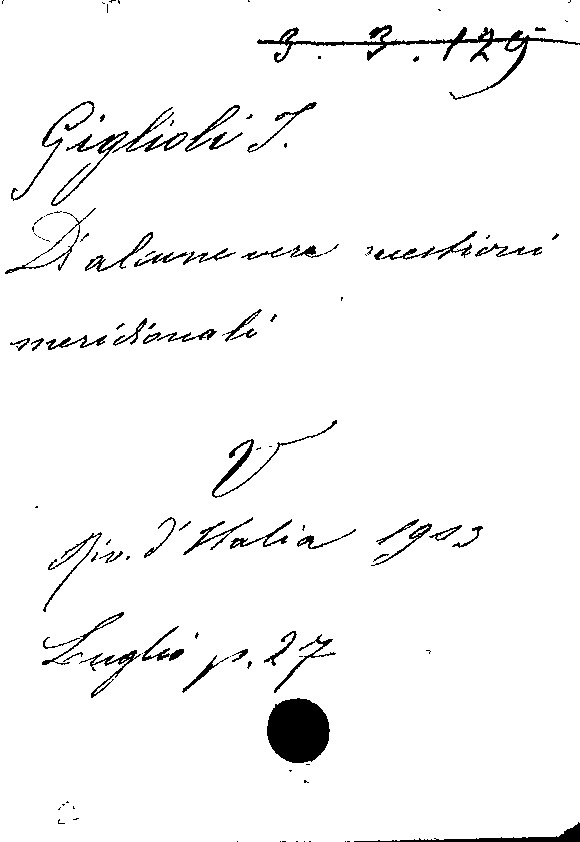 3. 3. 129
Giglioli I.
Di alcune vere questioni
meridionali
V
Riv. d'Italia 1903
Luglio p. 27